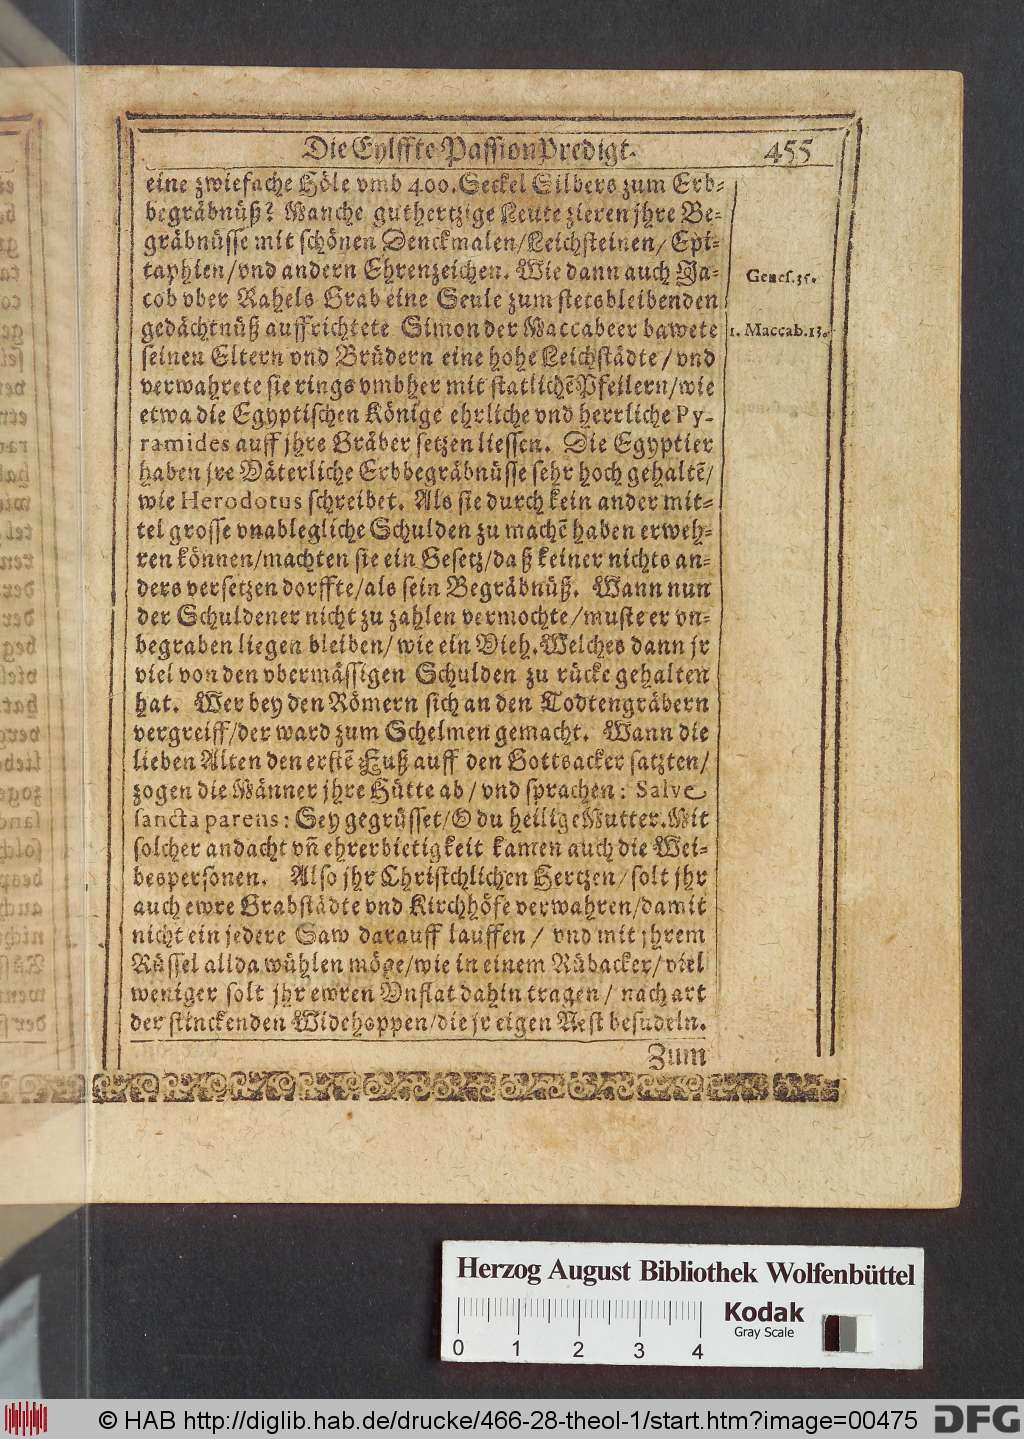 Die Eylffte Passion Predigt. 455
eine zwiefache Höle vmb 400. Seckel Silbers zum Erb-
begräbnüß? Manche guthertzige Leute zieren jhre Be-
gräbnüsse mit schönen Denckmalen/Leichsteinen/Epi-
taphien/vnd andern Ehrenzeichen. Wie dann auch Ja-
Genes. 35.
cob vber Rahels Grab eine Seule zum stetsbleibenden
gedächtnüß auffrichtete Simon der Maccabeer bawete
1. Maccab. 13.
seinen Eltern vnd Brüdern eine hohe Leichstädte/vnd
verwahrete sie rings vmbher mit statlichẽ Pfeilern/wie
etwa die Egyptischen Könige ehrliche vnd herrliche Py-
ramides auff jhre Gräber setzen liessen. Die Egyptier
haben jre Väterliche Erbbegräbnüsse sehr hoch gehaltẽ/
wie Herodotus schreibet. Als sie durch kein ander mit-
tel grosse vnablegliche Schulden zu machẽ haben erweh-
ren können/machten sie ein Gesetz/daß keiner nichts an-
ders versetzen dorffte/als sein Begräbnüß. Wann nun
der Schuldener nicht zu zahlen vermochte/muste er vn-
begraben liegen bleiben/wie ein Vieh. Welches dann jr
viel von den vbermässigen Schulden zu rücke gehalten
hat. Wer bey den Römern sich an den Todtengräbern
vergreiff/der ward zum Schelmen gemacht. Wann die
lieben Alten den erstẽ Fuß auff den Gottsacker satzten/
zogen die Männer jhre Hütte ab/vnd sprachen: Salve
sancta parens: Sey gegrüsset/O du heilige Mutter. Mit
solcher andacht vñ ehrerbietigkeit kamen auch die Wei-
bespersonen. Also jhr Christchlichen Hertzen/solt jhr
auch ewre Grabstädte vnd Kirchhöfe verwahren/damit
nicht ein jedere Saw darauff lauffen/vnd mit jhrem
Rüssel allda wühlen möge/wie in einem Rübacker/viel
weniger solt jhr ewren Vnflat dahin tragen/nach art
der stinckenden Widehoppen/die jr eigen Nest besudeln.
Zum
Herzog August Bibliothek Wolfenbüttel
Kodak
Gray Scale
0 1 2 3 4
© HAB http://diglib.hab.de/drucke/466-28-theol-1/start.htm?image=00475
DFG